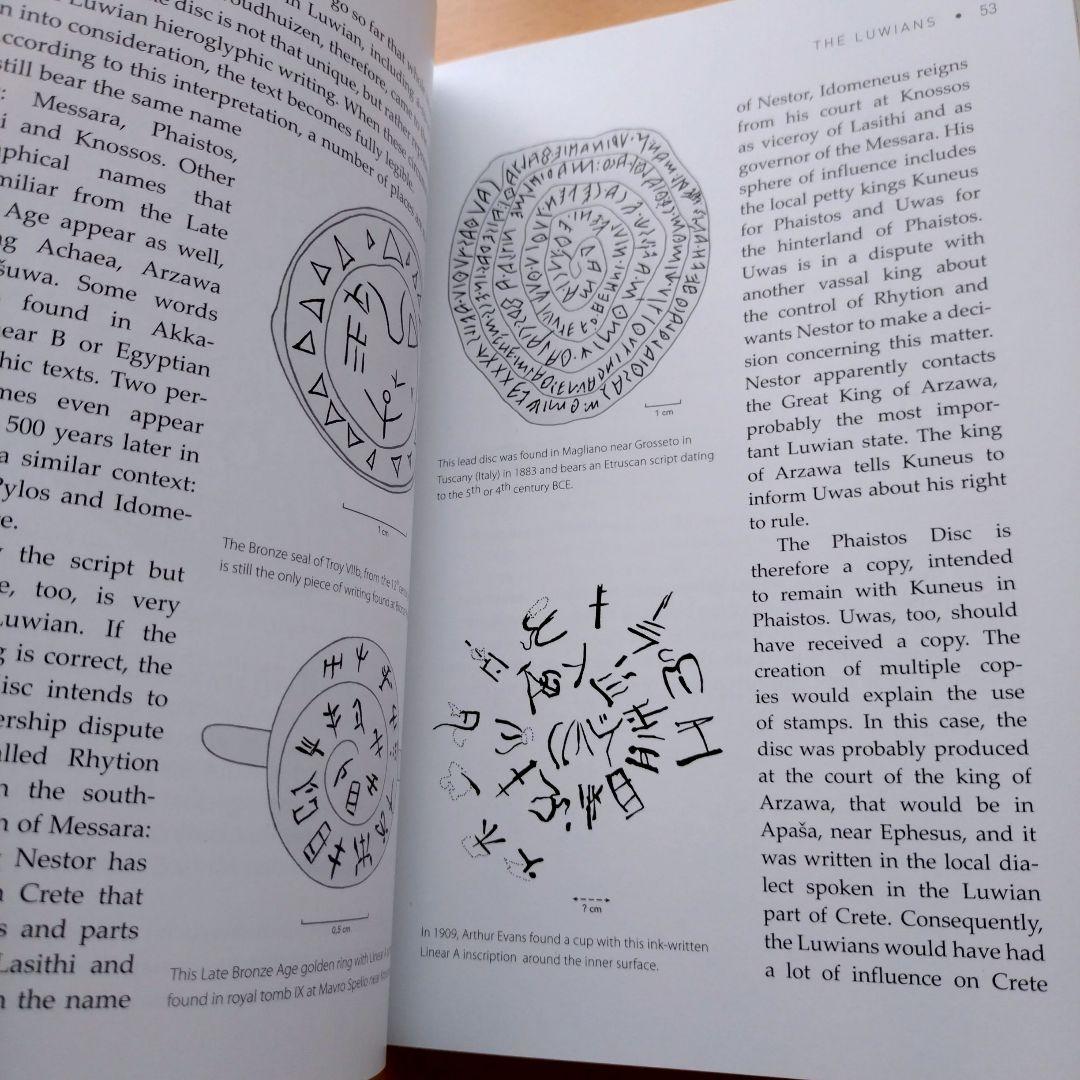 go so far that
in Luwian, including a
disc is not that unique, but rather
oudhuizen, therefore, came to the
Luwian hieroglyphic writing. When these
n into consideration, the text becomes fully legible.
According to this interpretation, a number of places
still bear the same name
: Messara, Phaistos,
i and Knossos. Other
aphical names that
miliar from the Late
Age appear as well,
ng Achaea, Arzawa
šuwa. Some words
found in Akka-
near B or Egyptian
hic texts. Two per-
mes even appear
500 years later in
a similar context:
Pylos and Idome-
e.
the script but
e, too, is very
Luwian. If the
g is correct, the
isc intends to
ership dispute
alled Rhytion
n the south-
n of Messara:
Nestor has
n Crete that
s and parts
Lasithi and
n the name
1 cm
The Bronze seal of Troy VIIb, from the 12th
is still the only piece of writing found at
0,5 cm
This Late Bronze Age golden ring with Linear A
found in royal tomb IX at Mavro Spelio near
THE LUWIANS • 53
1 cm
This lead disc was found in Magliano near Grosseto in
Tuscany (Italy) in 1883 and bears an Etruscan script dating
to the 5th or 4th century BCE.
? cm
In 1909, Arthur Evans found a cup with this ink-written
Linear A inscription around the inner surface.
of Nestor, Idomeneus reigns
from his court at Knossos
as viceroy of Lasithi and as
governor of the Messara. His
sphere of influence includes
the local petty kings Kuneus
for Phaistos and Uwas for
the hinterland of Phaistos.
Uwas is in a dispute with
another vassal king about
the control of Rhytion and
wants Nestor to make a deci-
sion concerning this matter.
Nestor apparently contacts
the Great King of Arzawa,
probably the most impor-
tant Luwian state. The king
of Arzawa tells Kuneus to
inform Uwas about his right
to rule.
The Phaistos Disc is
therefore a copy, intended
to remain with Kuneus in
Phaistos. Uwas, too, should
have received a copy. The
creation of multiple cop-
ies would explain the use
of stamps. In this case, the
disc was probably produced
at the court of the king of
Arzawa, that would be in
Apaša, near Ephesus, and it
was written in the local dia-
lect spoken in the Luwian
part of Crete. Consequently,
the Luwians would have had
a lot of influence on Crete